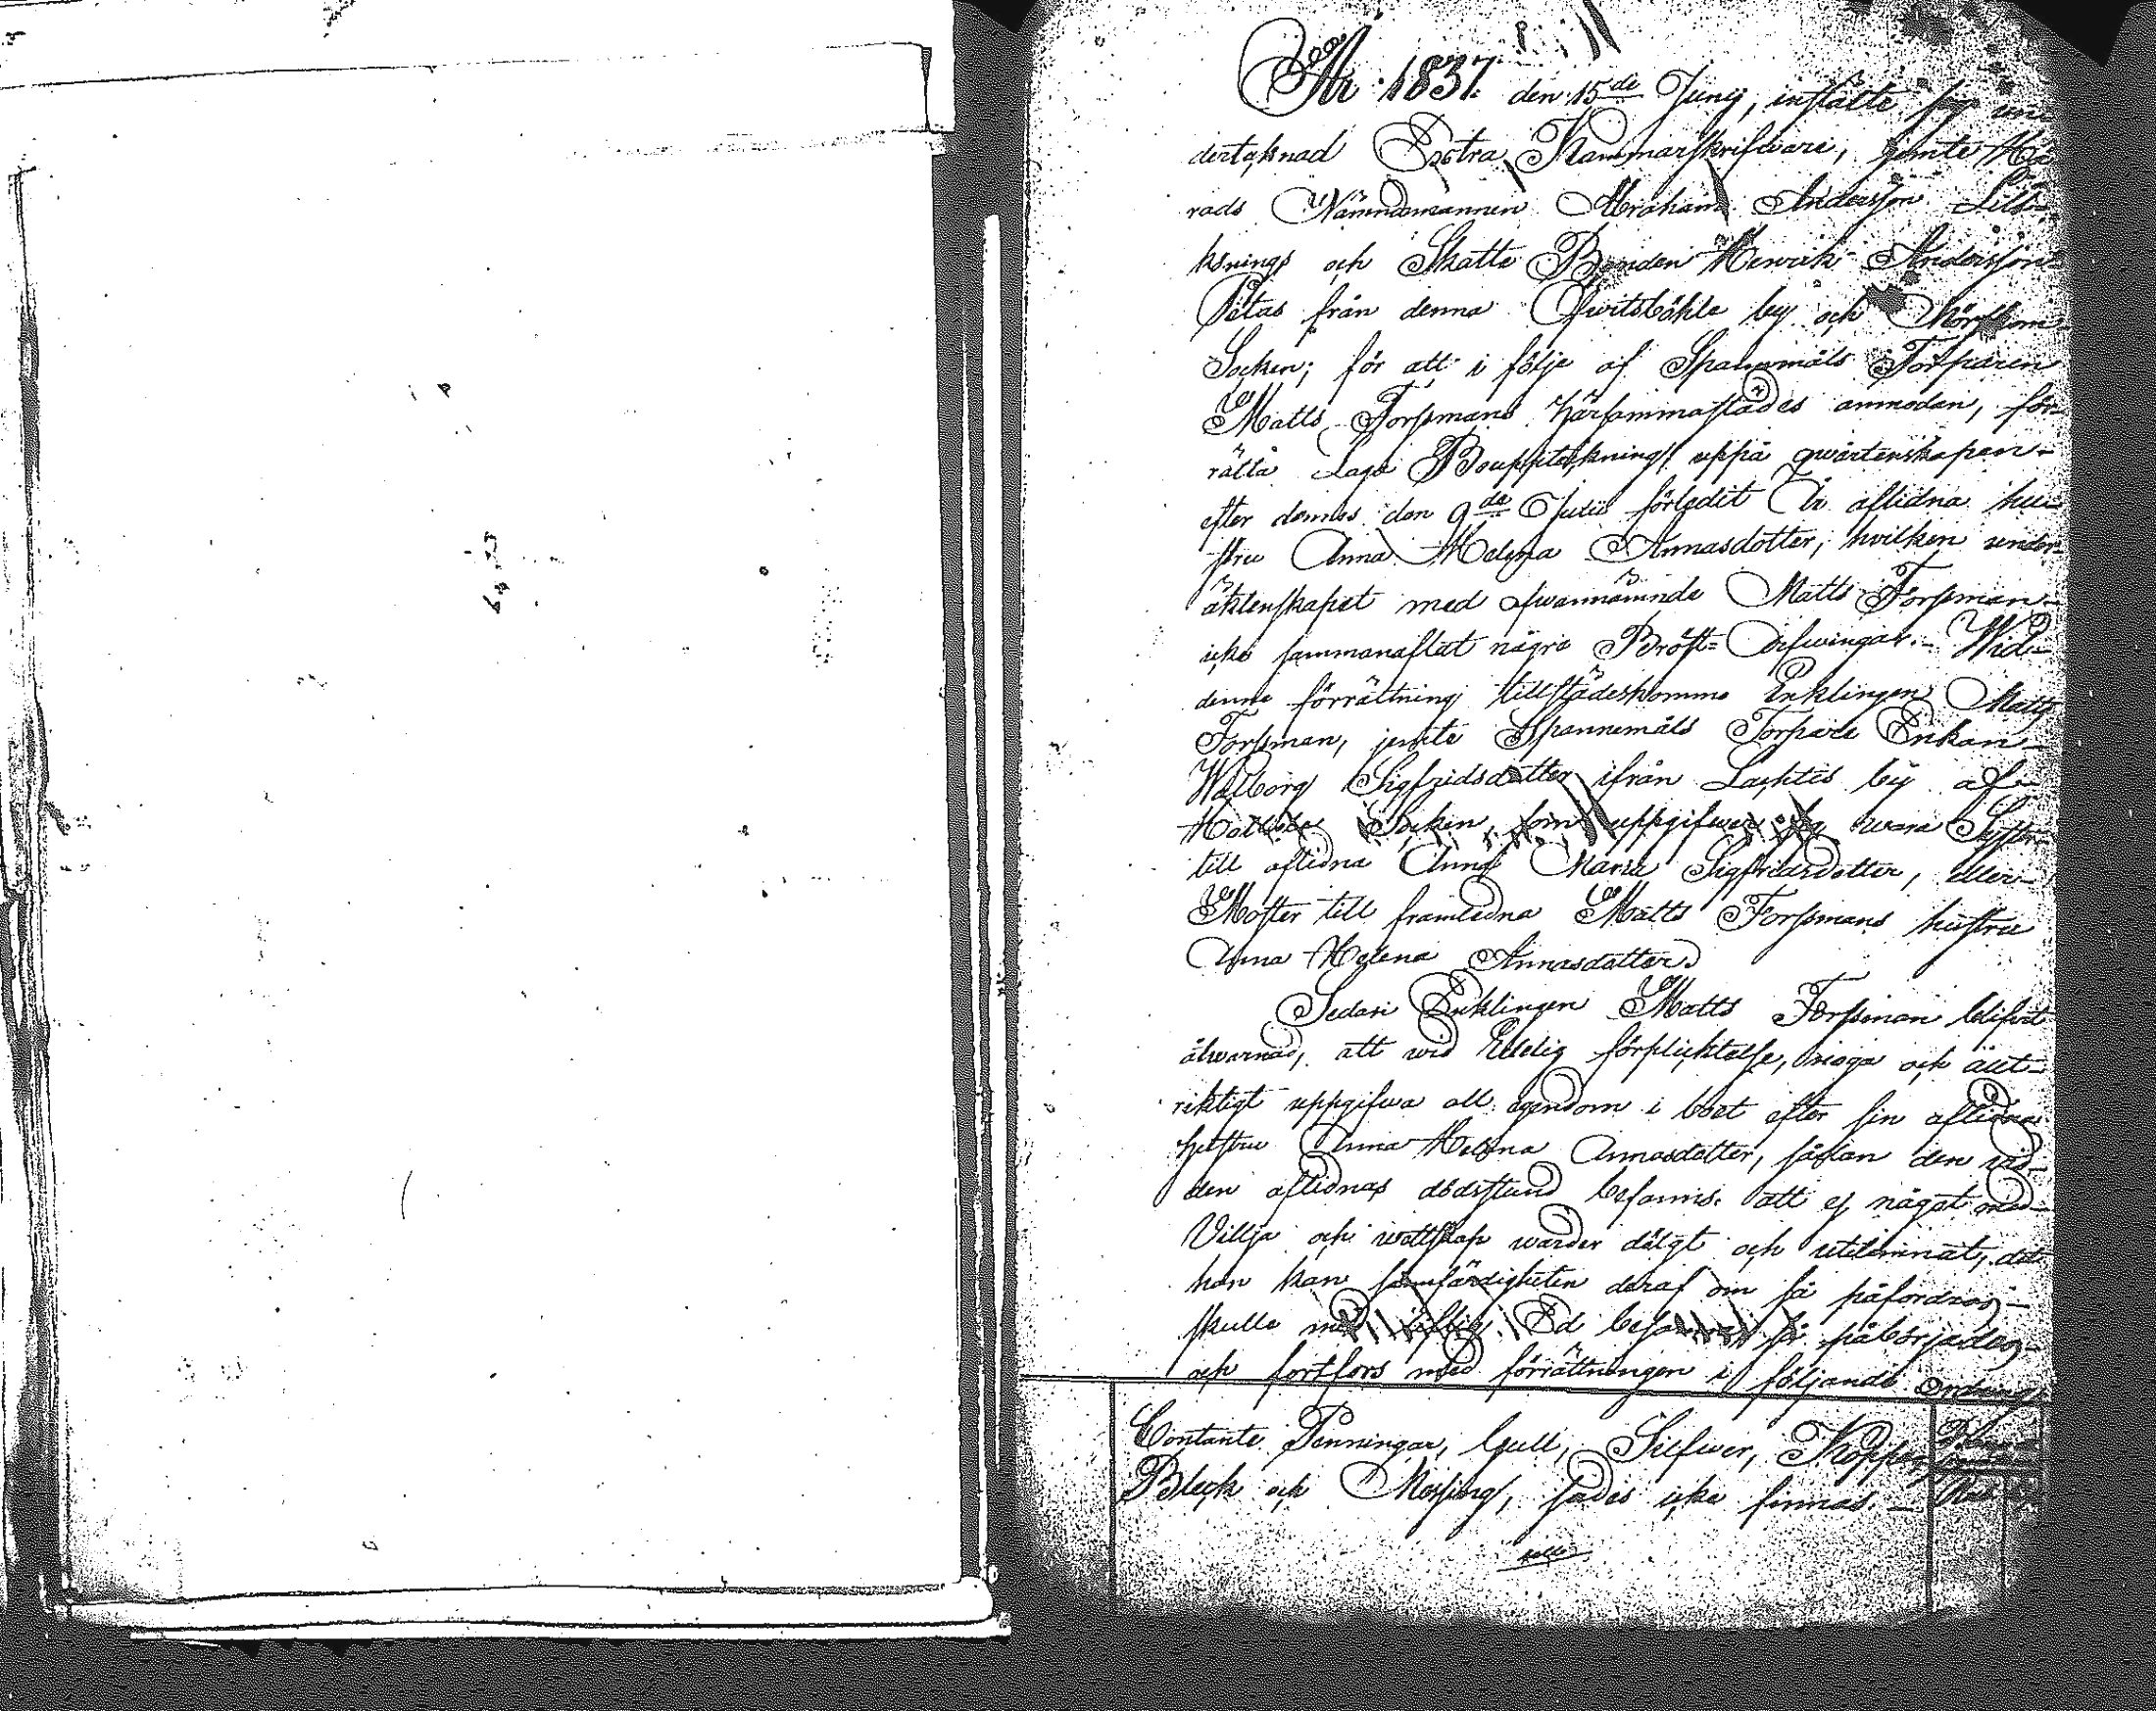 År 1837 den 15de Junij, instälte sig un
derteknad Extra Kammarskrifware, jemte Hä
rads Nämndemannen Abraham Andersson Lill-
och Skatte Bonden Henrik Andersson
Påtas från denna Qwitsböhle by och Mörskom
Socken; för att i följe af Spannmåls Torparen
Matts Forssmans härsammastädes anmodan, för-
rätta Laga Bouppteckning uppå qwarlenskapen
efter dennes den 9de Julii förledit År aflidna hu-
stru Anna Helena Annasdotter, hvilken under
äktenskapet med ofwannämnde Matts Forssman
icke sammanaflat någre Bröst-Arfwingar. Wid
denna förrättning tillstädeskommo Enklingen Matts
Forssman, jemte Spannemåls Torpare Enkan
Walborg Sigfridsdotter ifrån Lachtis by af
Socken, som uppgifwer sig wara Syster
till aflidna Anna Maria Sigfridsdotter, eller
Moster till framledna Matts Forssmans hustru
Anna Helena Annasdotter.
Sedan Enklingen Matts Forssman blifvit
åtwarnad, att wid Edelig förplicktelse, noga och
riktigt uppgifwa all egendom i boet efter sin aflidna
hustru Anna Helena Annasdotter, sådan den wid
den aflidnas dödsstund befanns. att ej något med
Villja och wettskap warder dölgt och utelemnat, det
han kan sannfärdigheten deraf om så påfordras
skulle med Ed så påbörjades
och fortfors med förrättningen i följande ordning
Contante Penningar, Gull, Silfwer, Koppar
Bleck och Messing, sades icke finnas. —